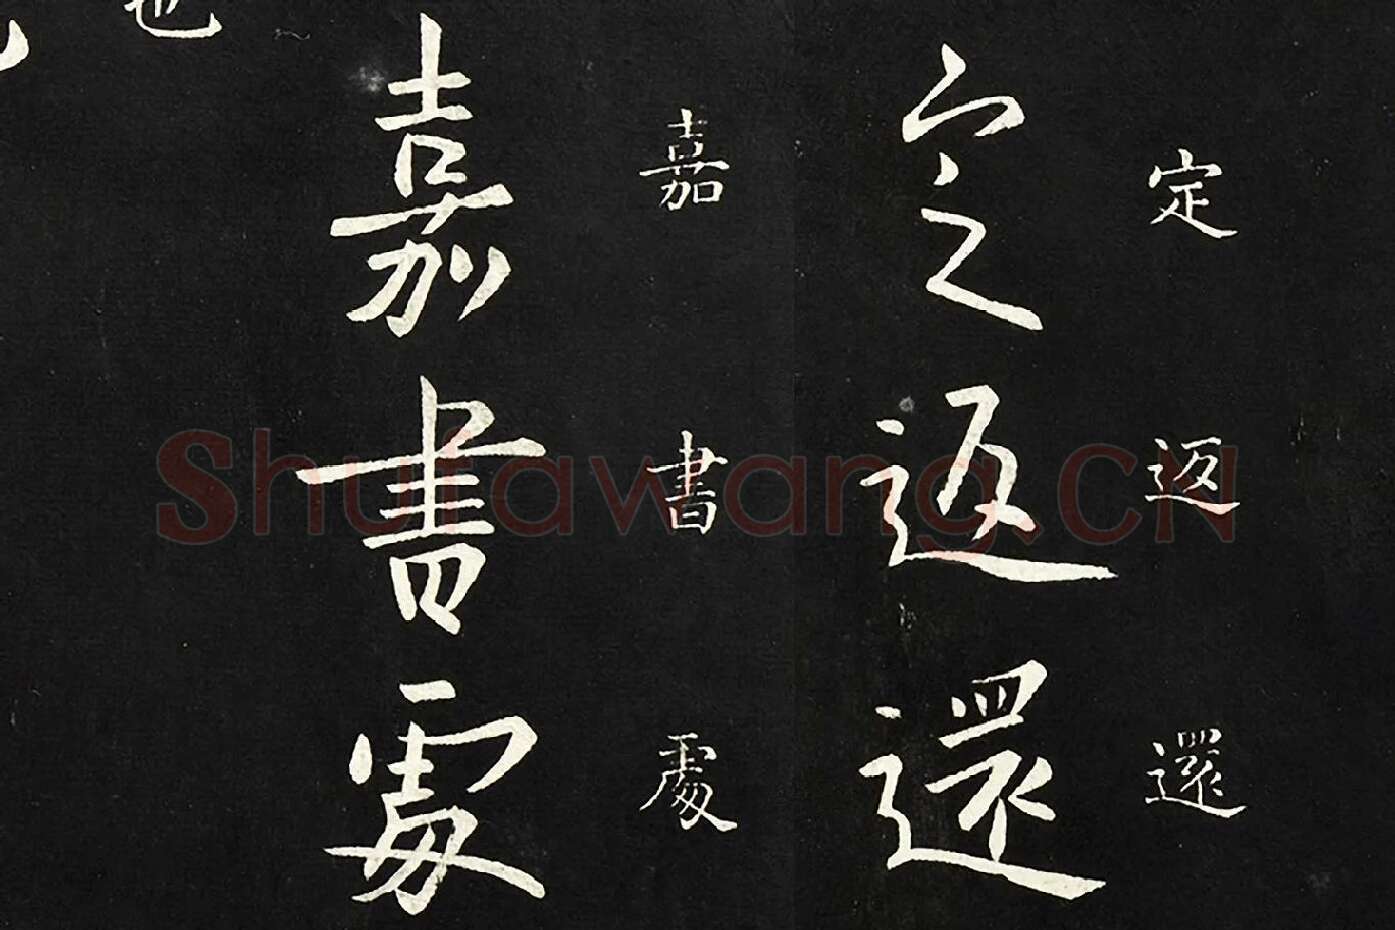 定返還
定返還
嘉書處
嘉書處
也
Shufawang.CN